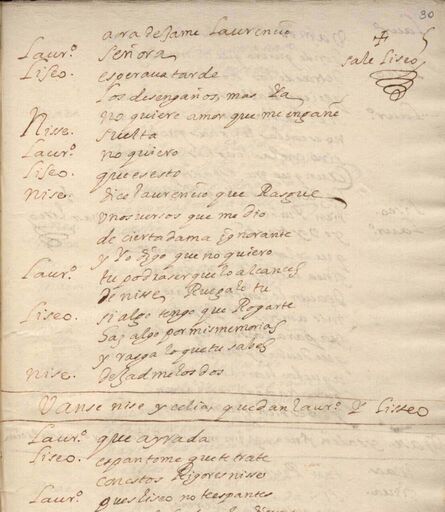 30
ayra dexame Laurencio
Laur.º Señora
sale Liseo
Liseo. esperava tarde
los desengaños, mas ya
no quiere amor que me engañe
Nise. suelta
Laur.º no quiero
Liseo. que es esto
nise. dice laurencio que Rasgue
unos versos que me dio
de cierta dama ygnorante
y yo digo que no quiero
Laur.º tu podra ser que lo alcances
de nise Ruegale tu
Liseo. si algo tengo que Rogarte
haz algo por mis memorias
y rasga lo que tu sabes
nise. dexadme los dos
Vanse nise y celia, quedan laur.º y Lisseo
Laur.º que ayrada
Liseo. espantome que te trate
con estos Rigores nisse
Laur.º pues liseo no te espantes